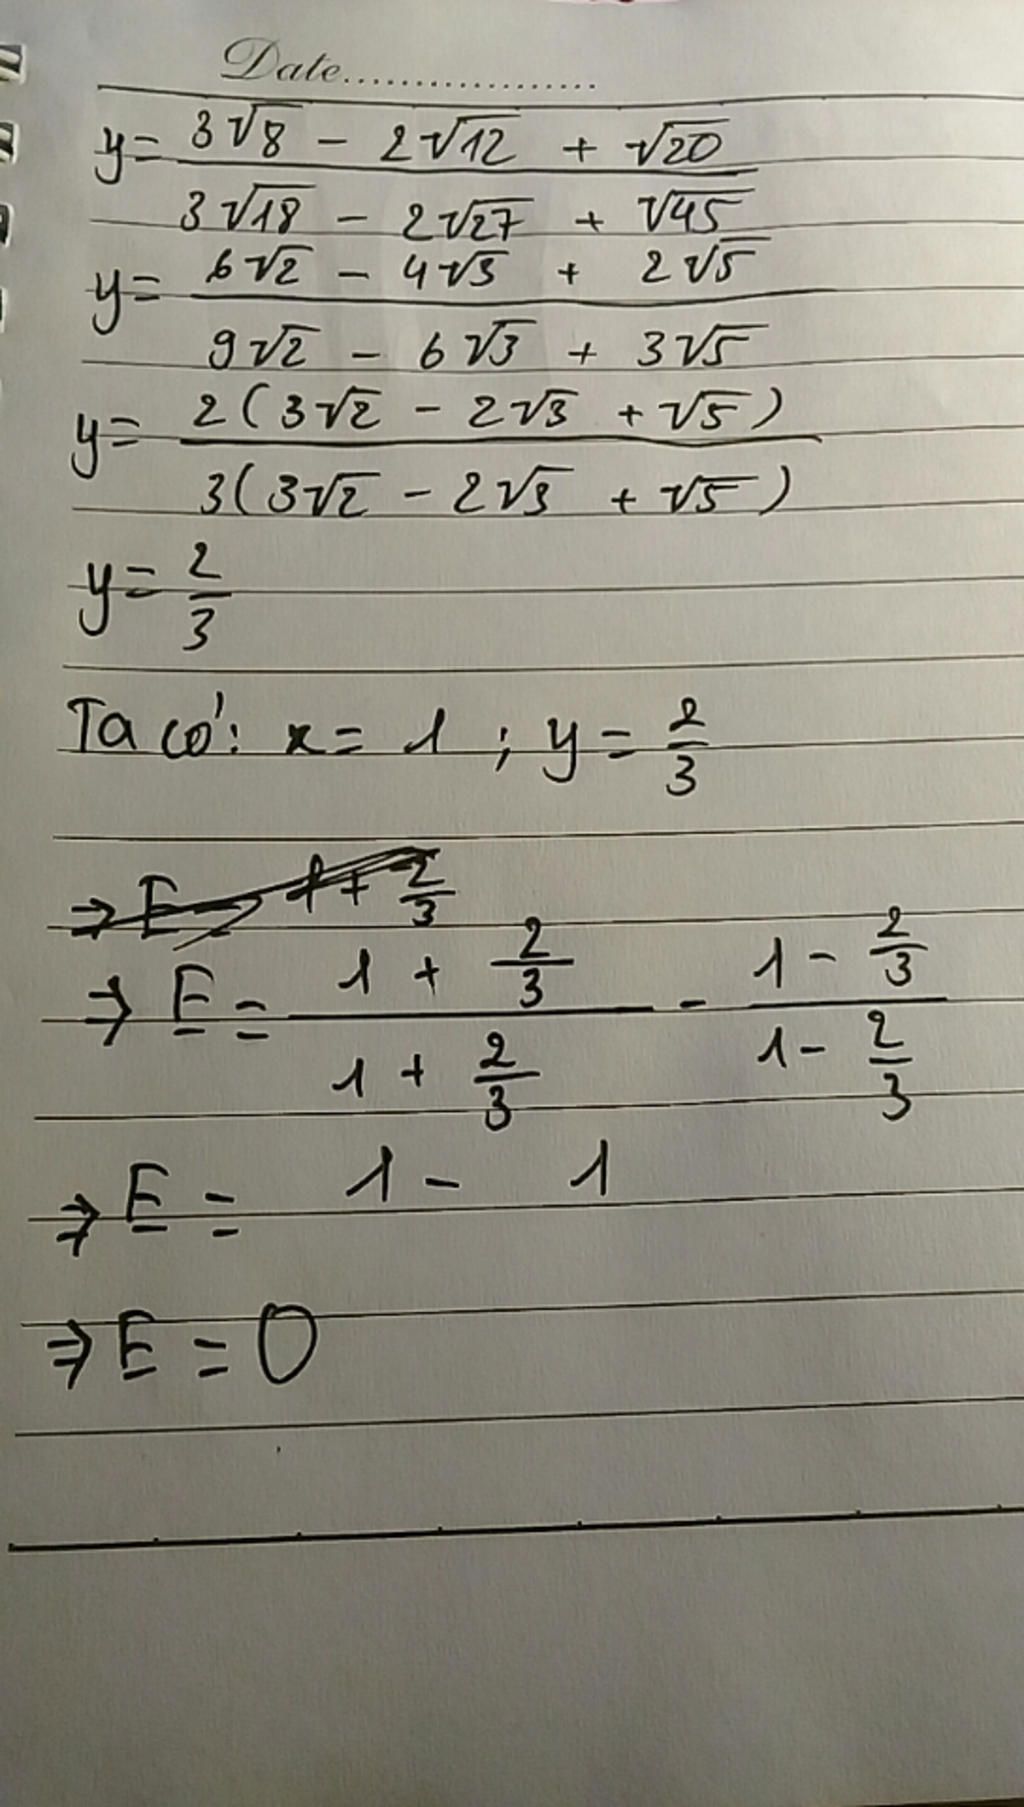 Date...................
y = (3√8 - 2√12 + √20) / (3√18 - 2√27 + √45)
y = (6√2 - 4√3 + 2√5) / (9√2 - 6√3 + 3√5)
y = 2(3√2 - 2√3 + √5) / 3(3√2 - 2√3 + √5)
y = 2/3
Ta có: x = 1 ; y = 2/3
⇒ E = 1 + 2/3
⇒ E = (1 + 2/3) / (1 + 2/3) - (1 - 2/3) / (1 - 2/3)
⇒ E = 1 - 1
⇒ E = 0